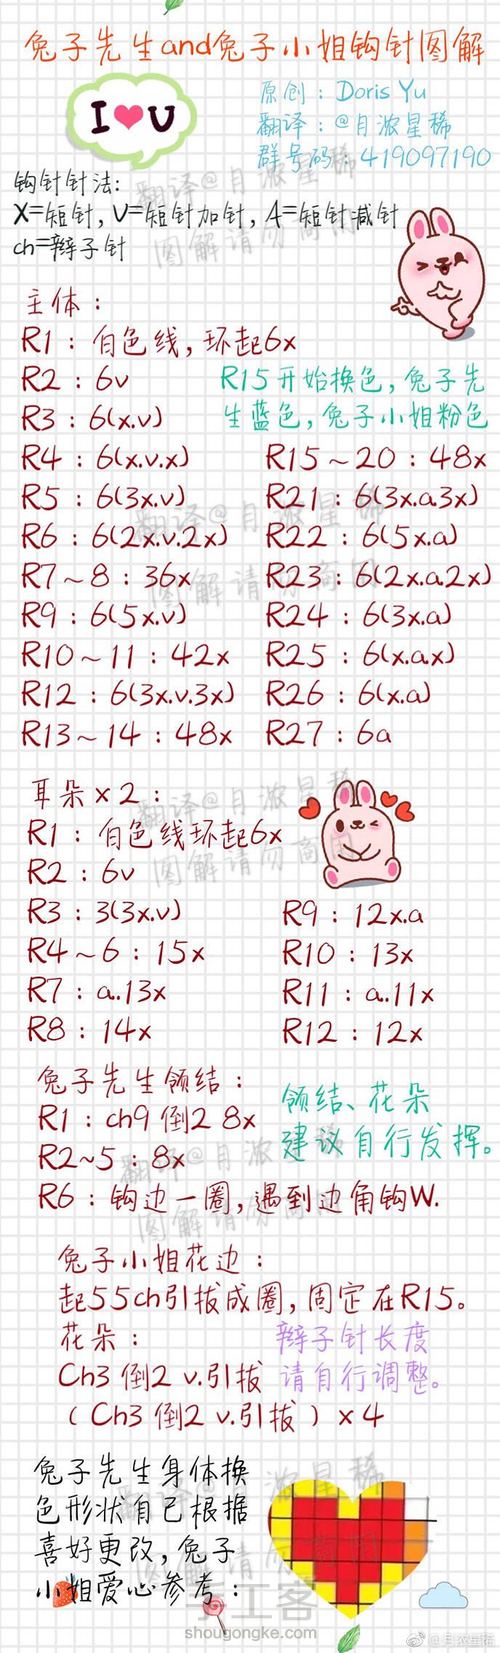 兔子先生and兔子小姐钩针图解
I ❤ U
原创：Doris Yu
翻译：@月浓星稀
群号码：419097190
钩针针法:
X=短针，V=短针加针，A=短针减针
ch=辫子针
主体：
R1：白色线，环起6x
R2：6v
R3：6(x.v)
R4：6(x.v.x)
R5：6(3x.v)
R6：6(2x.v.2x)
R7～8：36x
R9：6(5x.v)
R10～11：42x
R12：6(3x.v.3x)
R13～14：48x
R15开始换色，兔子先
生蓝色，兔子小姐粉色
R15～20：48x
R21：6(3x.a.3x)
R22：6(5x.a)
R23：6(2x.a.2x)
R24：6(3x.a)
R25：6(x.a.x)
R26：6(x.a)
R27：6a
耳朵×2：
R1：白色线环起6x
R2：6v
R3：3(3x.v)
R4～6：15x
R7：a..13x
R8：14x
R9：12x.a
R10：13x
R11：a.11x
R12：12x
兔子先生领结：
R1：ch9 倒2 8x
R2~5：8x
R6：钩边一圈，遇到边角钩W.
领结、花朵
建议自行发挥。
兔子小姐花边：
起55ch引拔成圈，固定在R15。
花朵：
Ch3 倒2 v.引拔
（Ch3 倒2 v.引拔）×4
辫子针长度
请自行调整。
兔子先生身体换
色形状自己根据
喜好更改，兔子
小姐爱心参考：
翻译@月浓星稀
图解请勿商用
手工客
shougongke.com
@月浓星稀